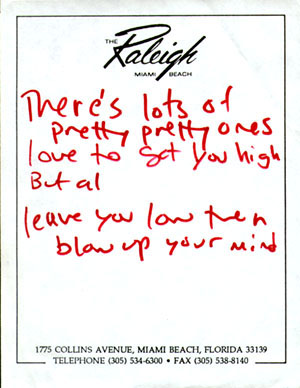 THE
Raleigh
MIAMI BEACH
There's lots of
pretty pretty ones
love to get you high
But al
leave you low then
blow up your mind
1775 COLLINS AVENUE, MIAMI BEACH, FLORIDA 33139
TELEPHONE (305) 534-6300 • FAX (305) 538-8140